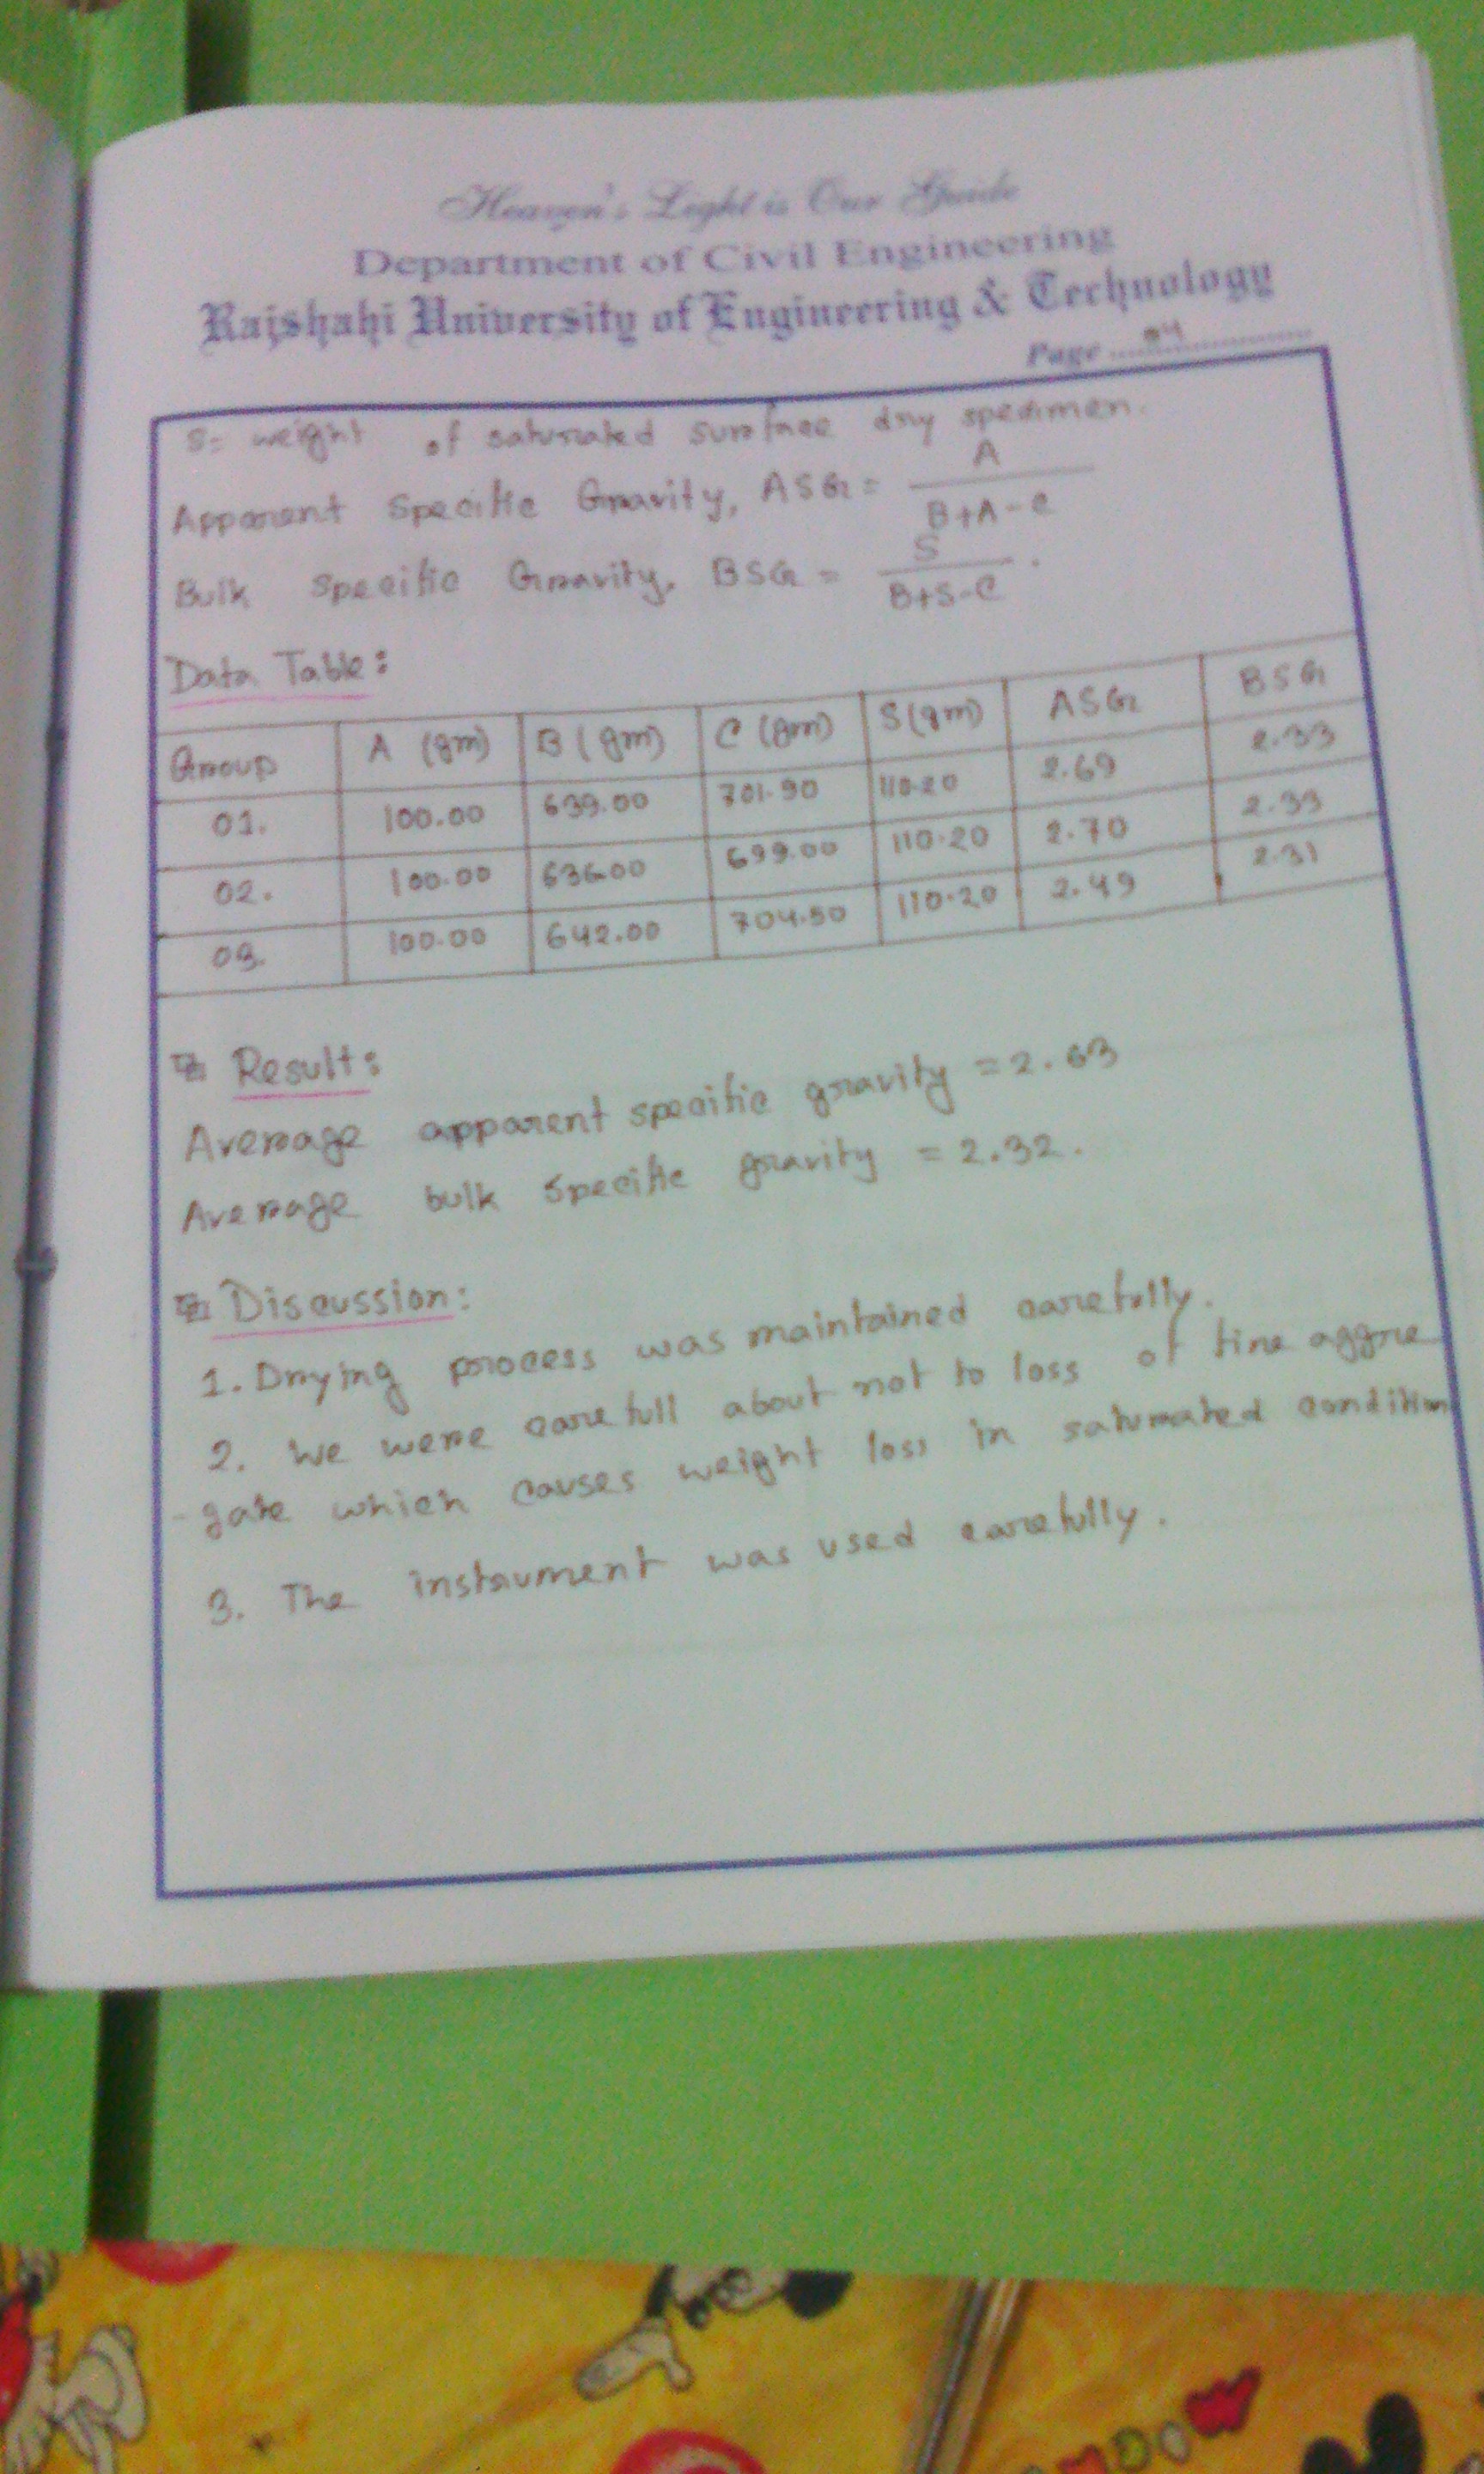 Heaven's Light is Our Guide
Department of Civil Engineering
Rajshahi University of Engineering & Technology
Page ....04....
S= weight of saturated surface dry specimen.
Apparent Specific Gravity, ASG = A / B+A-C
Bulk Specific Gravity, BSG = S / B+S-C .
Data Table:
Group A (gm) B (gm) C (gm) S (gm) ASG BSG
01. 100.00 639.00 701.90 110.20 2.69 2.33
02. 100.00 636.00 699.00 110.20 2.70 2.33
03. 100.00 642.00 704.50 110.20 2.49 2.31
Result:
Average apparent specific gravity = 2.63
Average bulk specific gravity = 2.32.
Discussion:
1. Drying process was maintained carefully.
2. We were carefull about not to loss of fine aggre
-gate which causes weight loss in saturated condition
3. The instrument was used carefully.